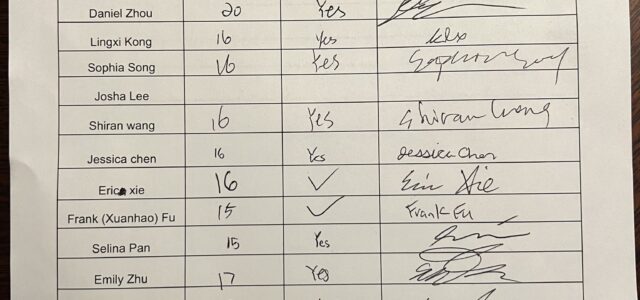 Daniel Zhou 20 Yes
Lingxi Kong 16 yes klx
Sophia Song 16 Yes Sophia Song
Josha Lee
Shiran wang 16 Yes Shiran Wang
Jessica chen 16 Yes Jessica Chen
Eric xie 16 ✓ Eric Xie
Frank (Xuanhao) Fu 15 ✓ Frank Fu
Selina Pan 15 Yes
Emily Zhu 17 Yes